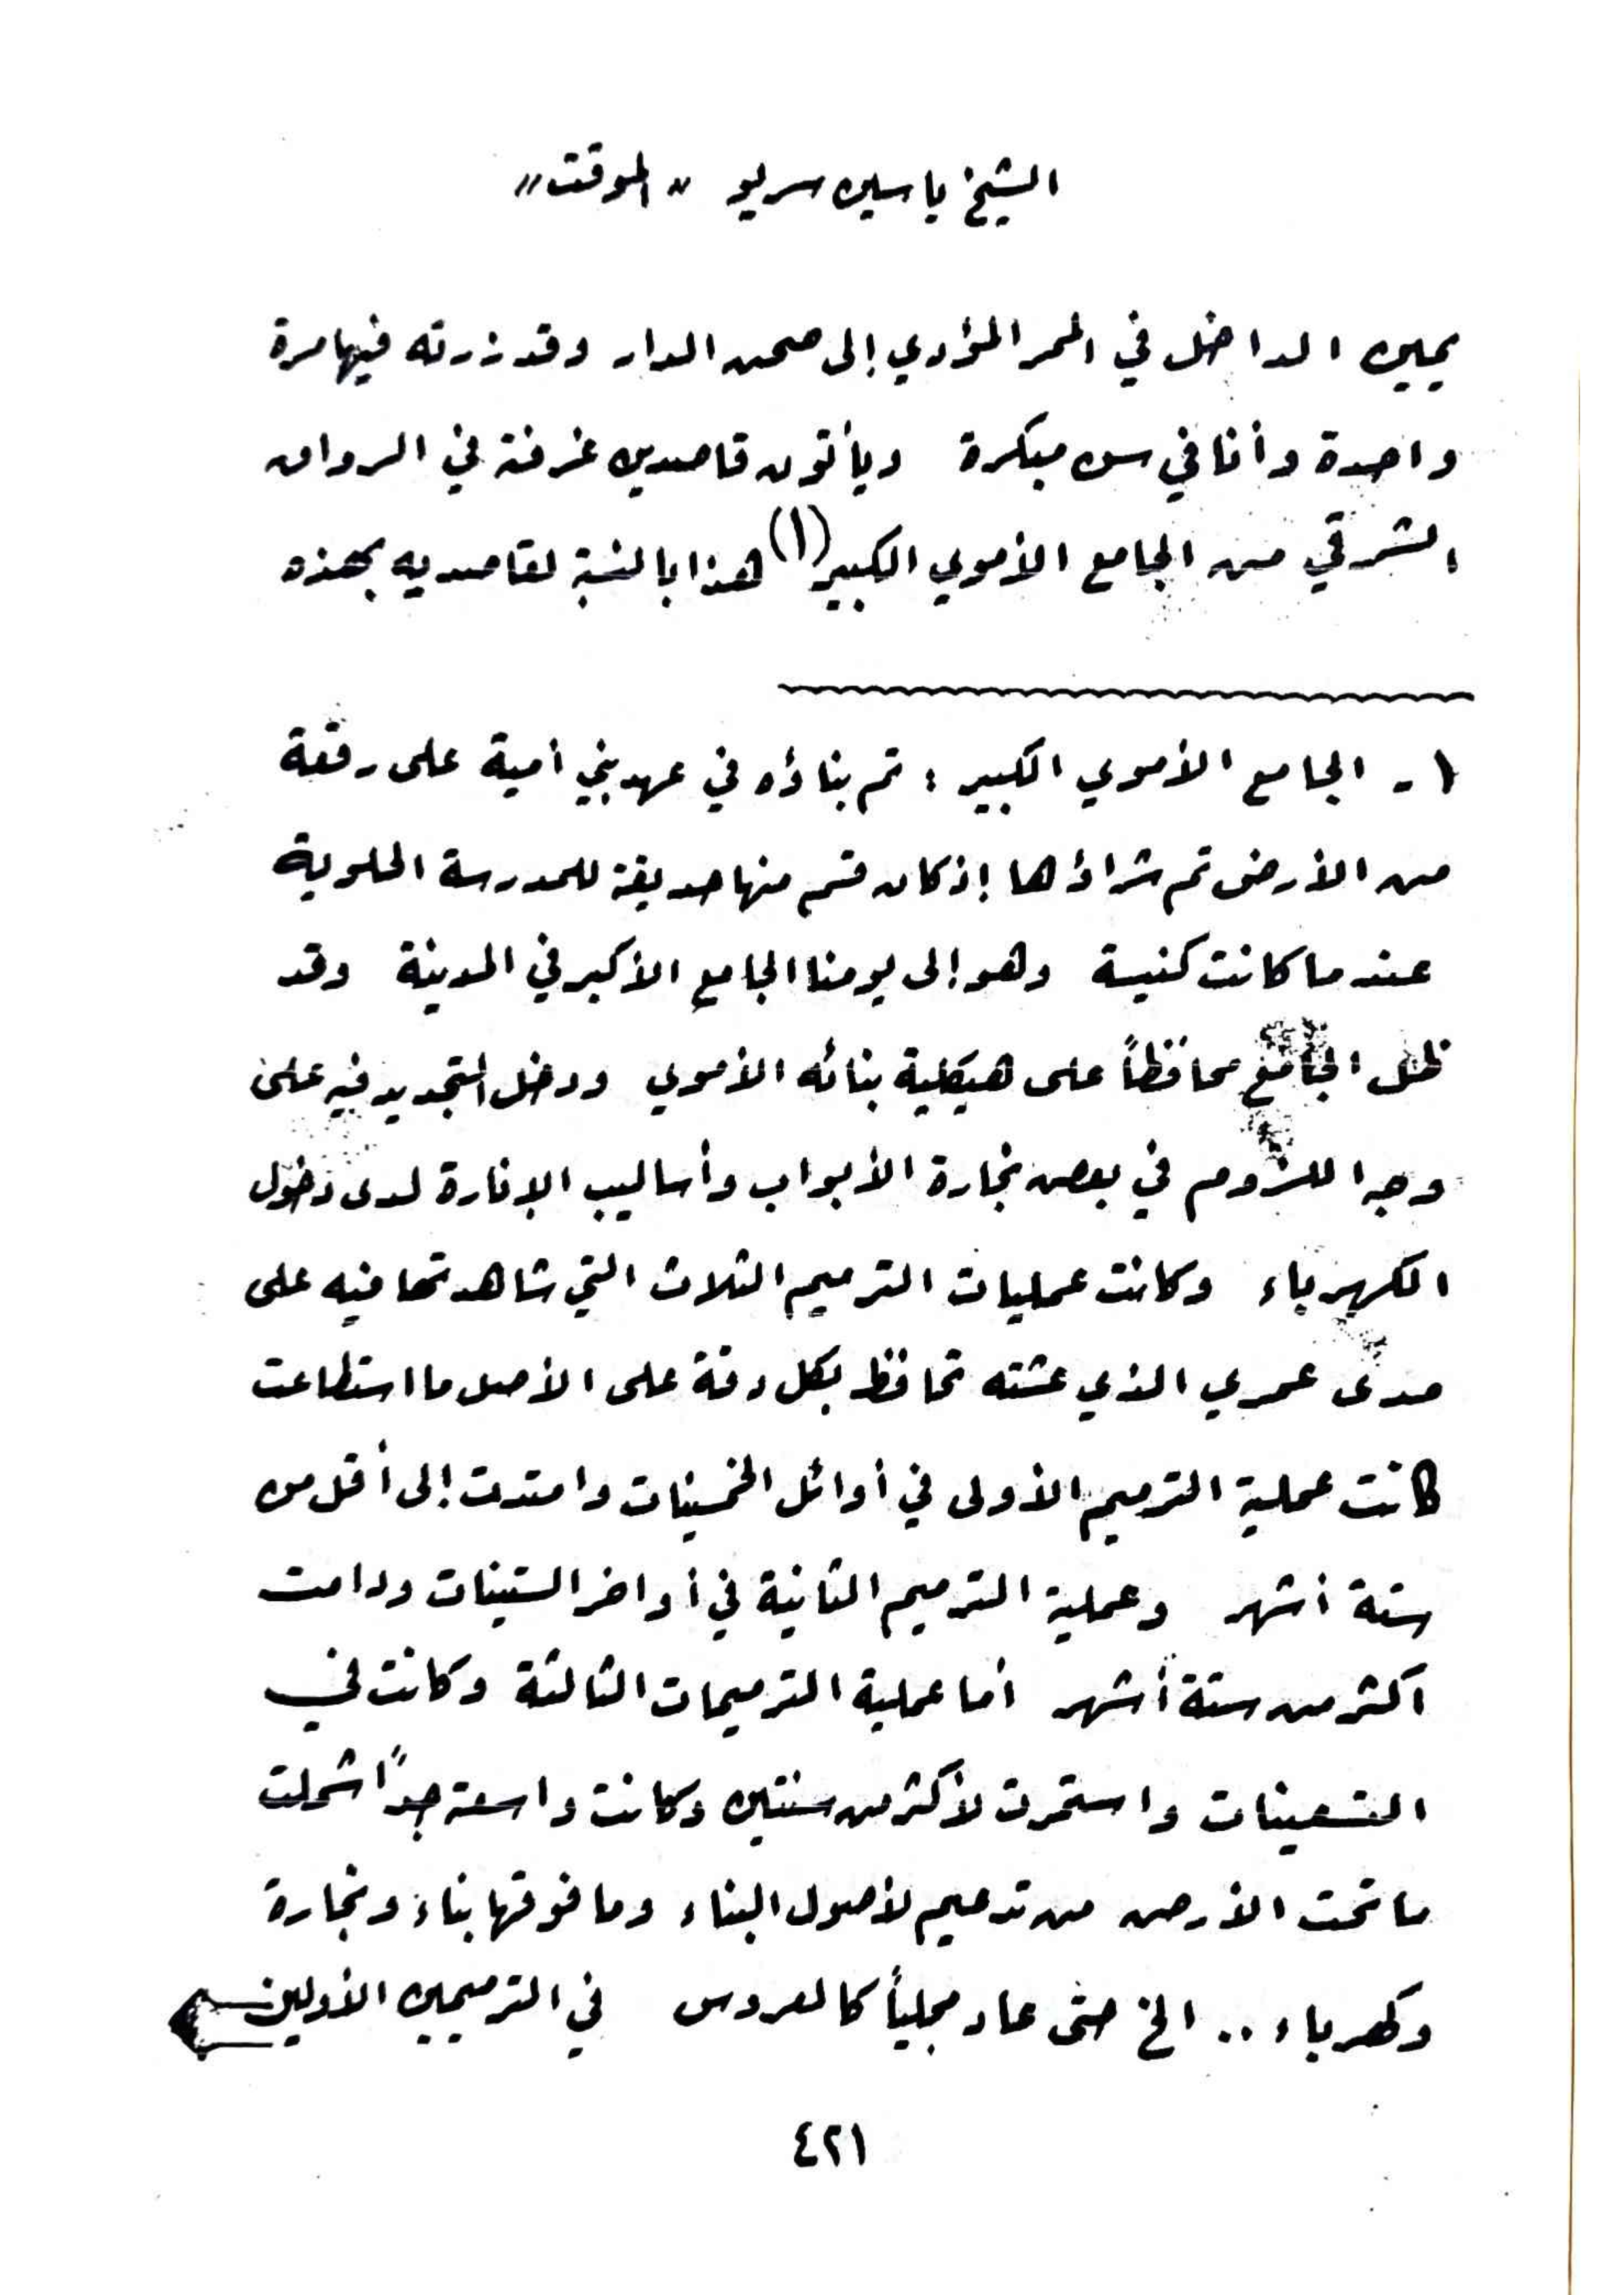 الشيخ ياسين سريو "الموقت"
يمين الداخل في الممر المؤدي إلى صحن الدار وقد زرته فيها مرة
واحدة وأنا في سن مبكرة ويأتون قاصدين غرفة في الرواق
الشرقي من الجامع الأموي الكبير(١) هذا بالنسبة لقاصديه بهذه
١- الجامع الأموي الكبير : تم بناؤه في عهد بني أمية على رقعة
من الأرض تم شراؤها إذ كان قسم منها حديقة للمدرسة الحلوية
عندما كانت كنيسة وهو إلى يومنا الجامع الأكبر في المدينة وقد
ظل الجامع محافظاً على هيكلية بنائه الأموي ودخل التجديد فيه على
وجه اللزوم في بعض نجارة الأبواب وأساليب الإنارة لدى دخول
الكهرباء وكانت عمليات الترميم الثلاث التي شاهدتها فيه على
مدى عمري الذي عشته تحافظ بكل دقة على الأصل ما استطاعت
كانت عملية الترميم الأولى في أوائل الخمسينات وامتدت إلى أقل من
ستة أشهر وعملية الترميم الثانية في أواخر الستينات ودامت
أكثر من ستة أشهر أما عملية الترميمات الثالثة وكانت في
التسعينات واستمرت لأكثر من سنتين وكانت واسعة جداً شملت
ما تحت الأرض من تدعيم لأصول البناء وما فوقها بناء ونجارة
وكهرباء .. الخ حتى عاد مجلياً كالعروس في الترميمين الأولين
٤٢١